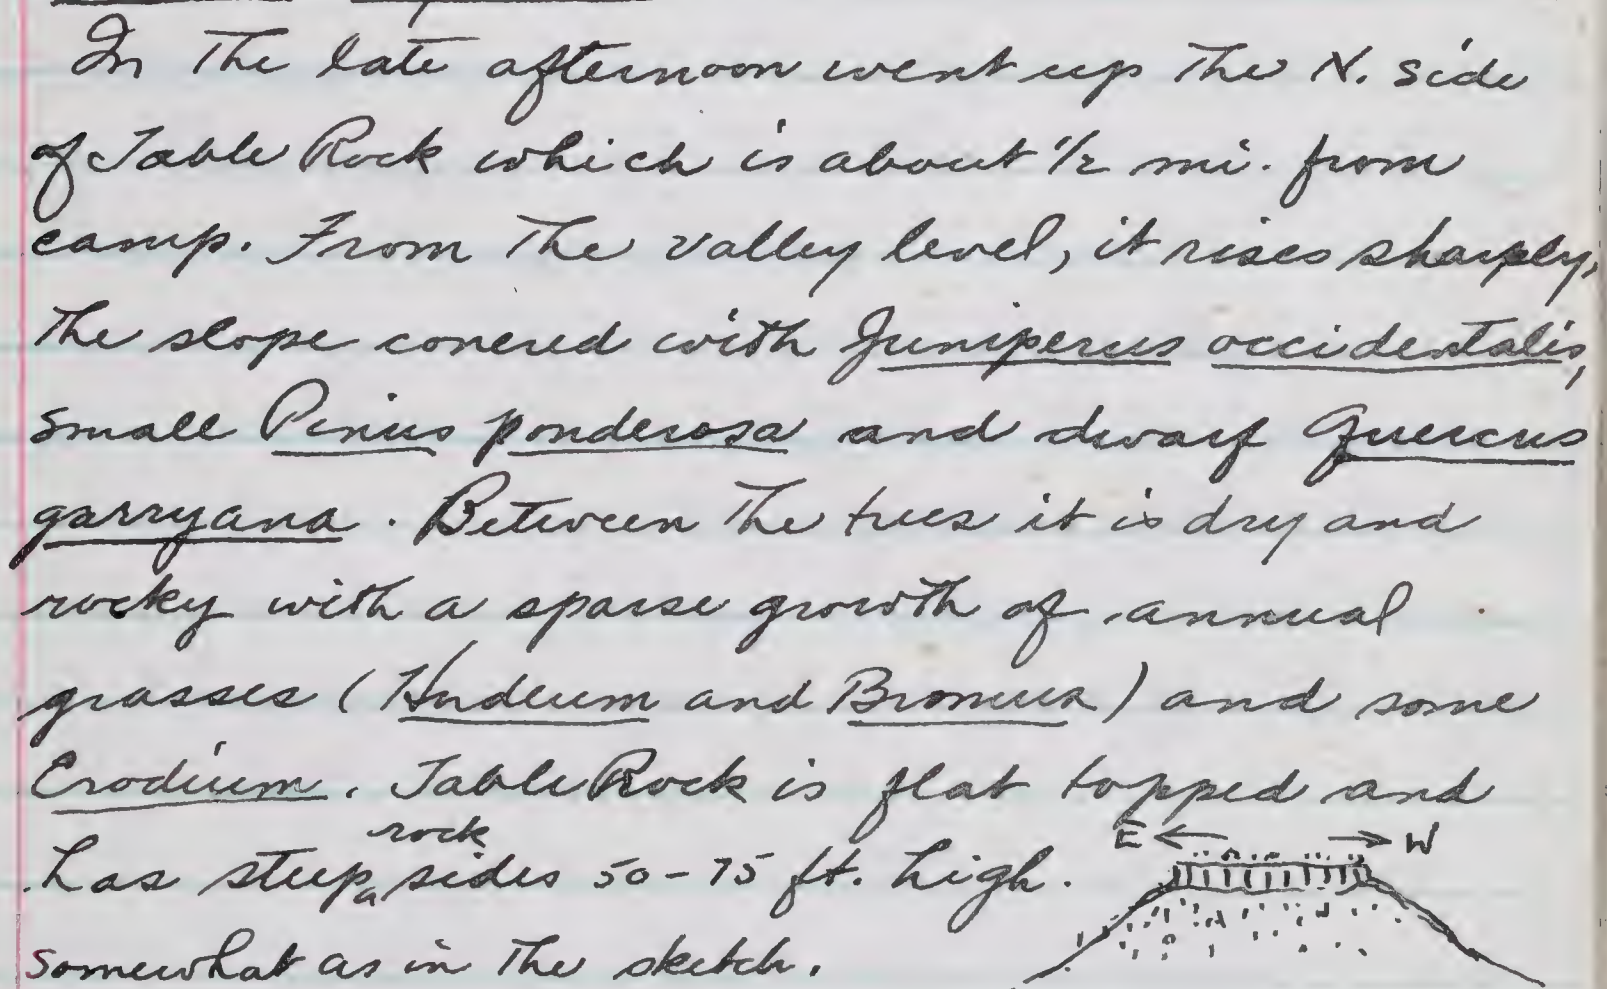 In The late afternoon went up The N. side
of Table Rock which is about 1/2 mi. from
camp. From The valley level, it rises sharply,
The slope covered with Juniperus occidentalis,
small Pinus ponderosa and dwarf Quercus
garryana. Between The trees it is dry and
rocky with a sparse growth of annual
grasses (Hordeum and Bromus) and some
Erodium. Table Rock is flat topped and
has steep ^rock sides 50-75 ft. high.
E ← → W
somewhat as in The sketch.